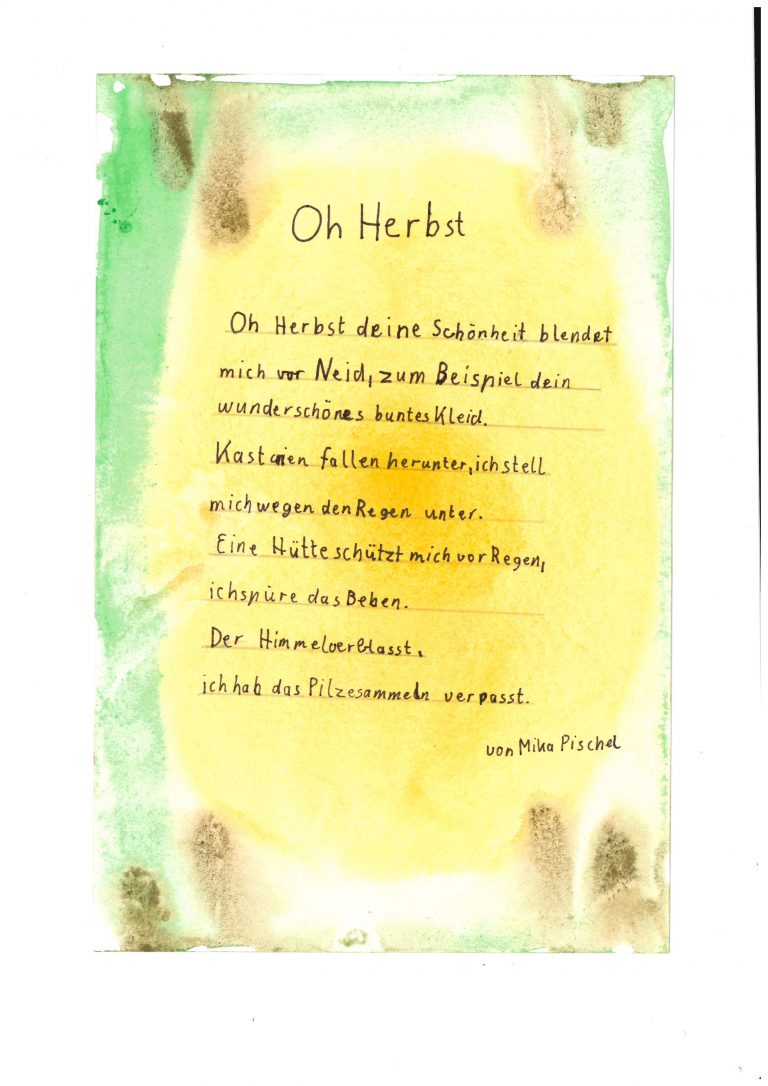 Oh Herbst
Oh Herbst deine Schönheit blendet
mich vor Neid, zum Beispiel dein
wunderschönes buntes Kleid.
Kastanien fallen herunter, ich stell
mich wegen den Regen unter.
Eine Hütte schützt mich vor Regen,
ich spüre das Beben.
Der Himmel verblasst.
ich hab das Pilzesammeln verpasst.
von Mika Pischel